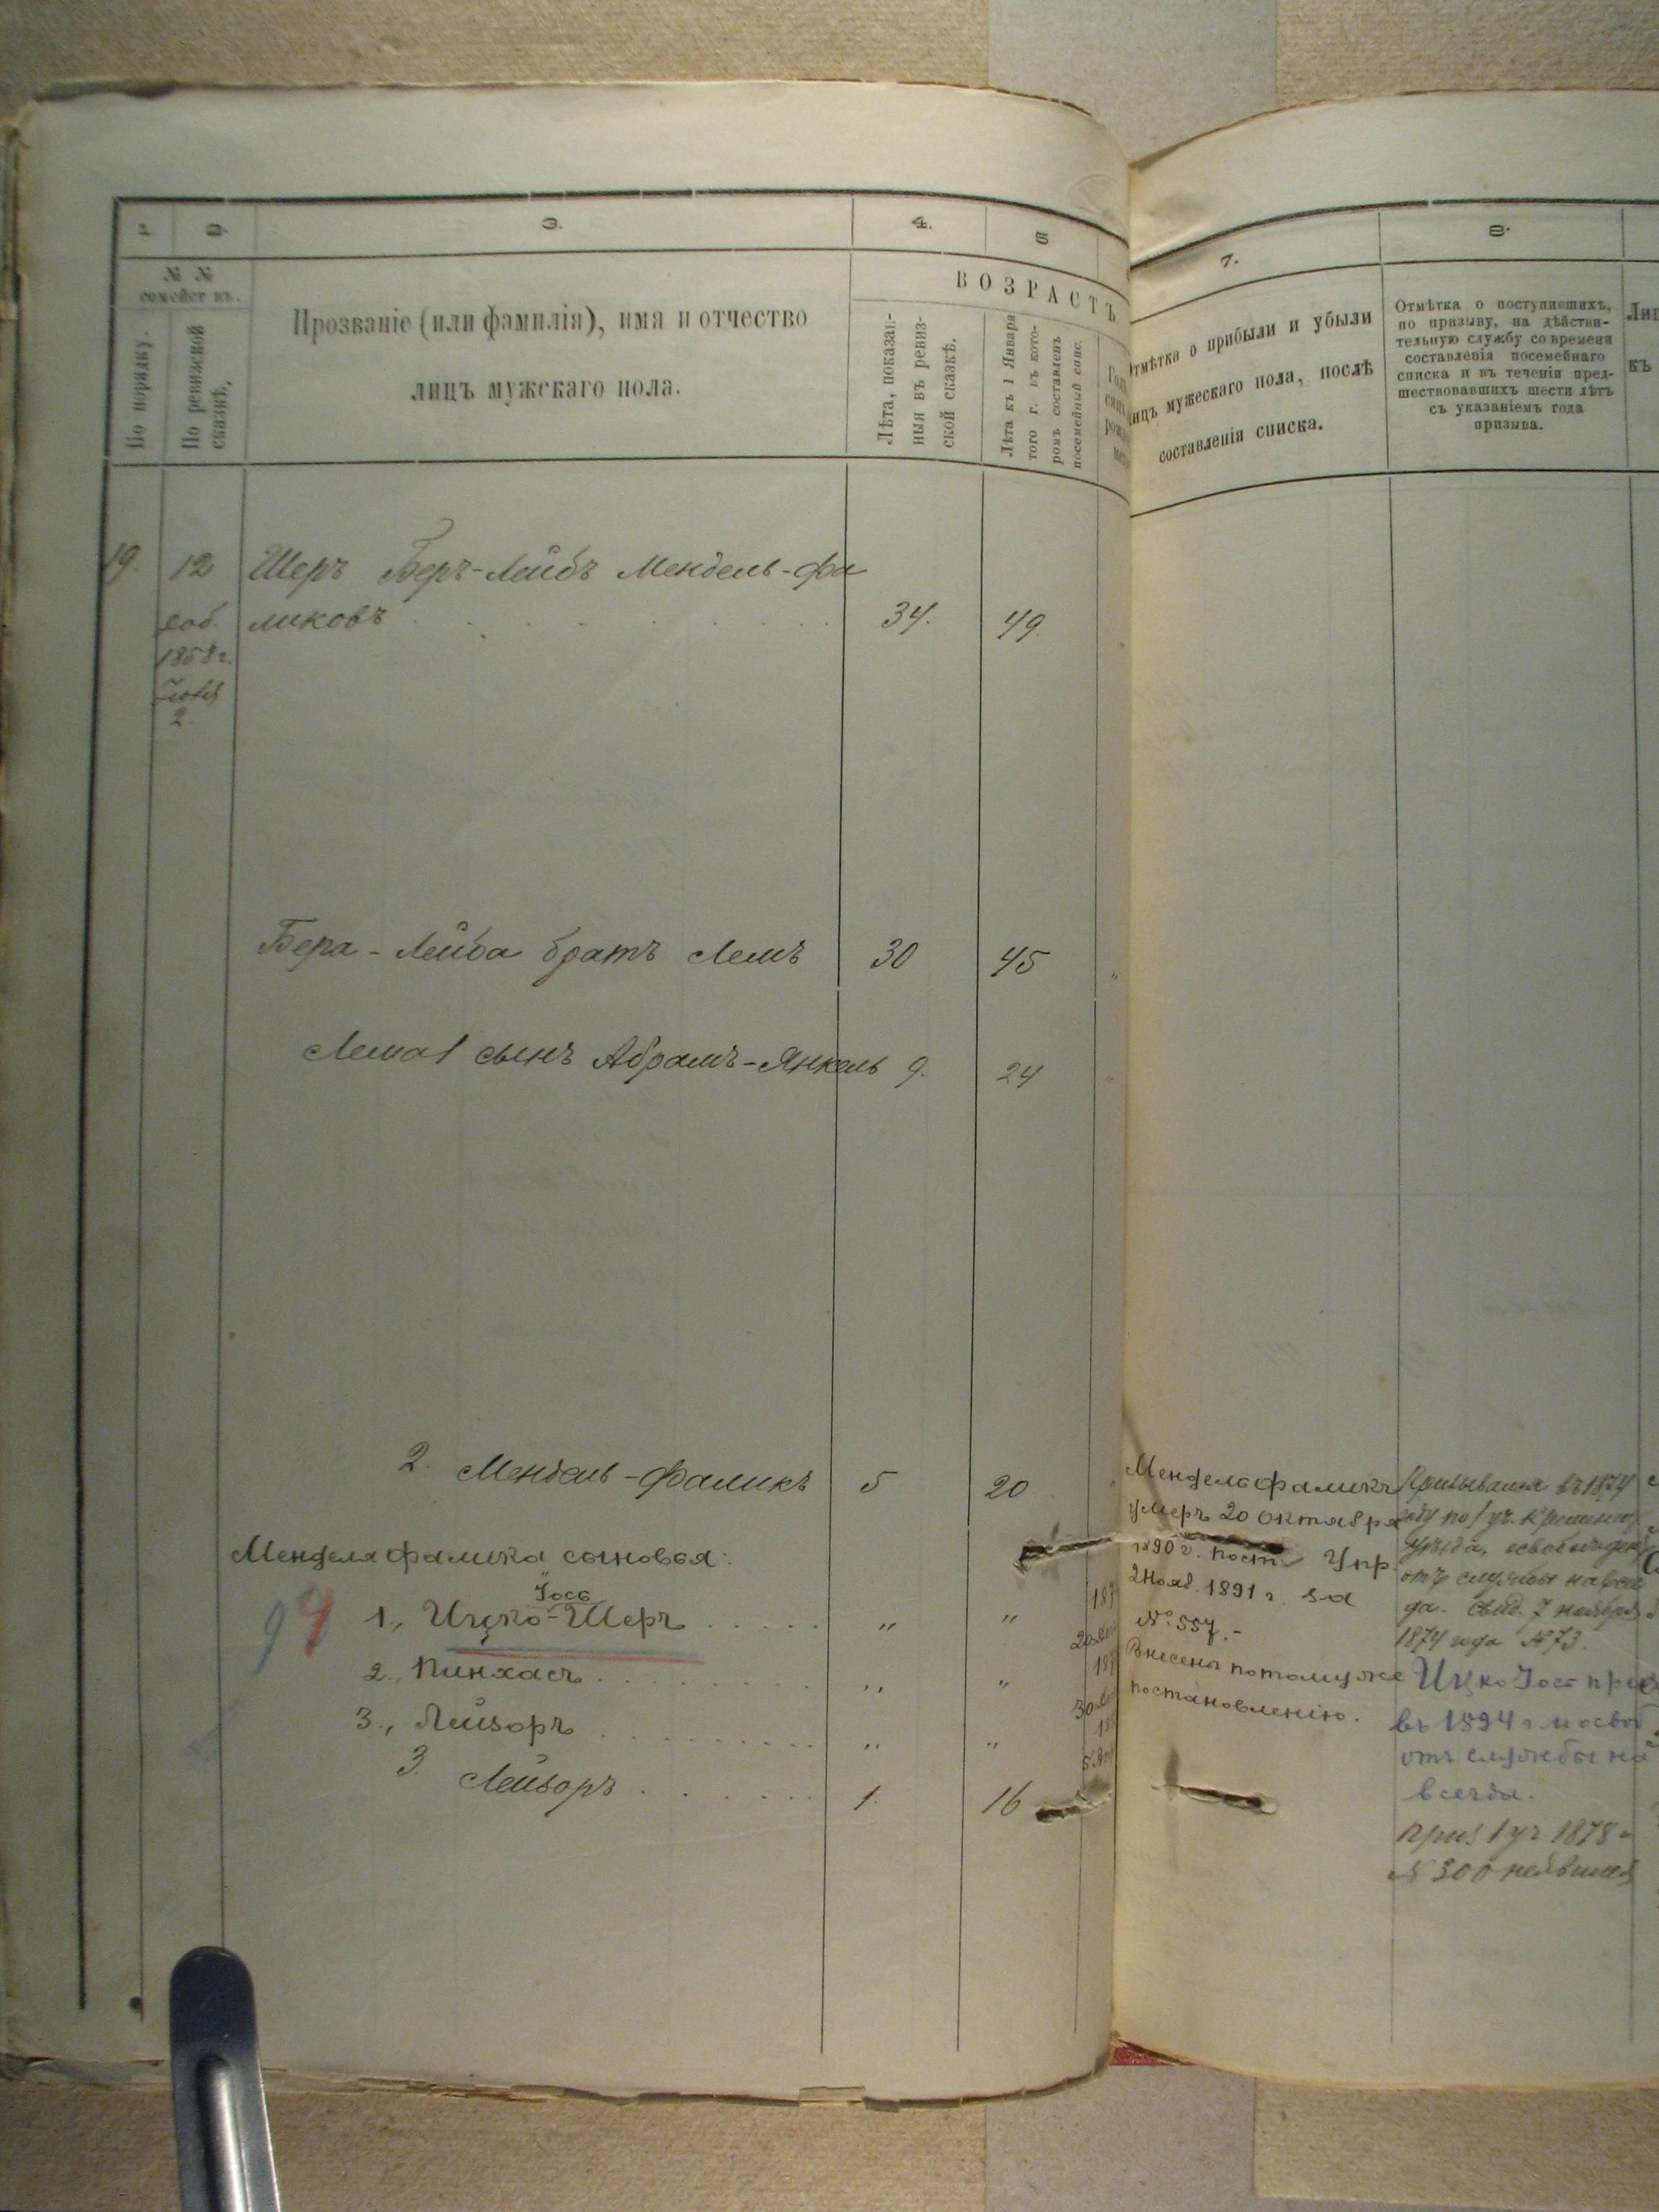 1. 2. 3. 4. 5
№ №
семействъ.
По порядку.
По ревизской
сказкѣ.
Прозваніе (или фамилія), имя и отчество
лицъ мужскаго пола.
ВОЗРАСТЪ
Лѣта, показан-
ныя въ ревиз-
ской сказкѣ.
Лѣта къ 1 Января
того г. въ кото-
ромъ составленъ
посемейный спис.
19. 12 Шеръ Беръ-Лейбъ Мендель-Фа
доб. ликовъ 34. 49
1858 г.
2
Бера-Лейба братъ Лемъ 30 45
Лема 1 сынъ Абрамъ-Янкель 9. 24
2. Мендель-Фаликъ 5 20
Менделя Фалика сыновья:
Іось
94 1., Ицко-Шеръ . . . . . " "
2., Пинхасъ . . . . . . . . " "
3., Лейзоръ . . . . . . . . " "
3. Лейзоръ . . . . . . 1. 16
7. 8.
Отмѣтка о прибыли и убыли
лицъ мужескаго пола, послѣ
составленія списка.
Отмѣтка о поступившихъ,
по призыву, на дѣйстви-
тельную службу со времени
составленія посемейнаго
списка и въ теченіи пред-
шествовавшихъ шести лѣтъ
съ указаніемъ года
призыва.
къ
Мендель Фаликъ
умеръ 20 октября
1890 г. пост. Упр.
2 Нояб. 1891 г. за
№ 557.-
Внесены потому же
постановленію.
Призывался въ 1874
году по 1 уч.
уѣзда, освобожден
отъ службы навсег
да. Свид. 7 ноября
1874 года № 73.
Ицко Іось приз
въ 1894 г. и освоб
отъ службы на
всегда.
Приз 1 уч 1878 г
№ 300 неявился